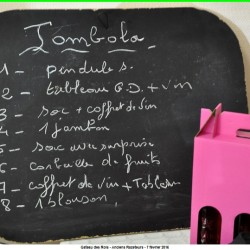 Tombola
1 - pendules.
2 - tableau G.D. + vin
3 - sac + coffret de vin
4 - 1 jambon
5 - sac vin surprise
6 - corbeille de fruits
7 - coffret de vin + Tableau
8 - 1 blouson,
Gateau des Rois - Anciens Rapateurs - 7 février 2016